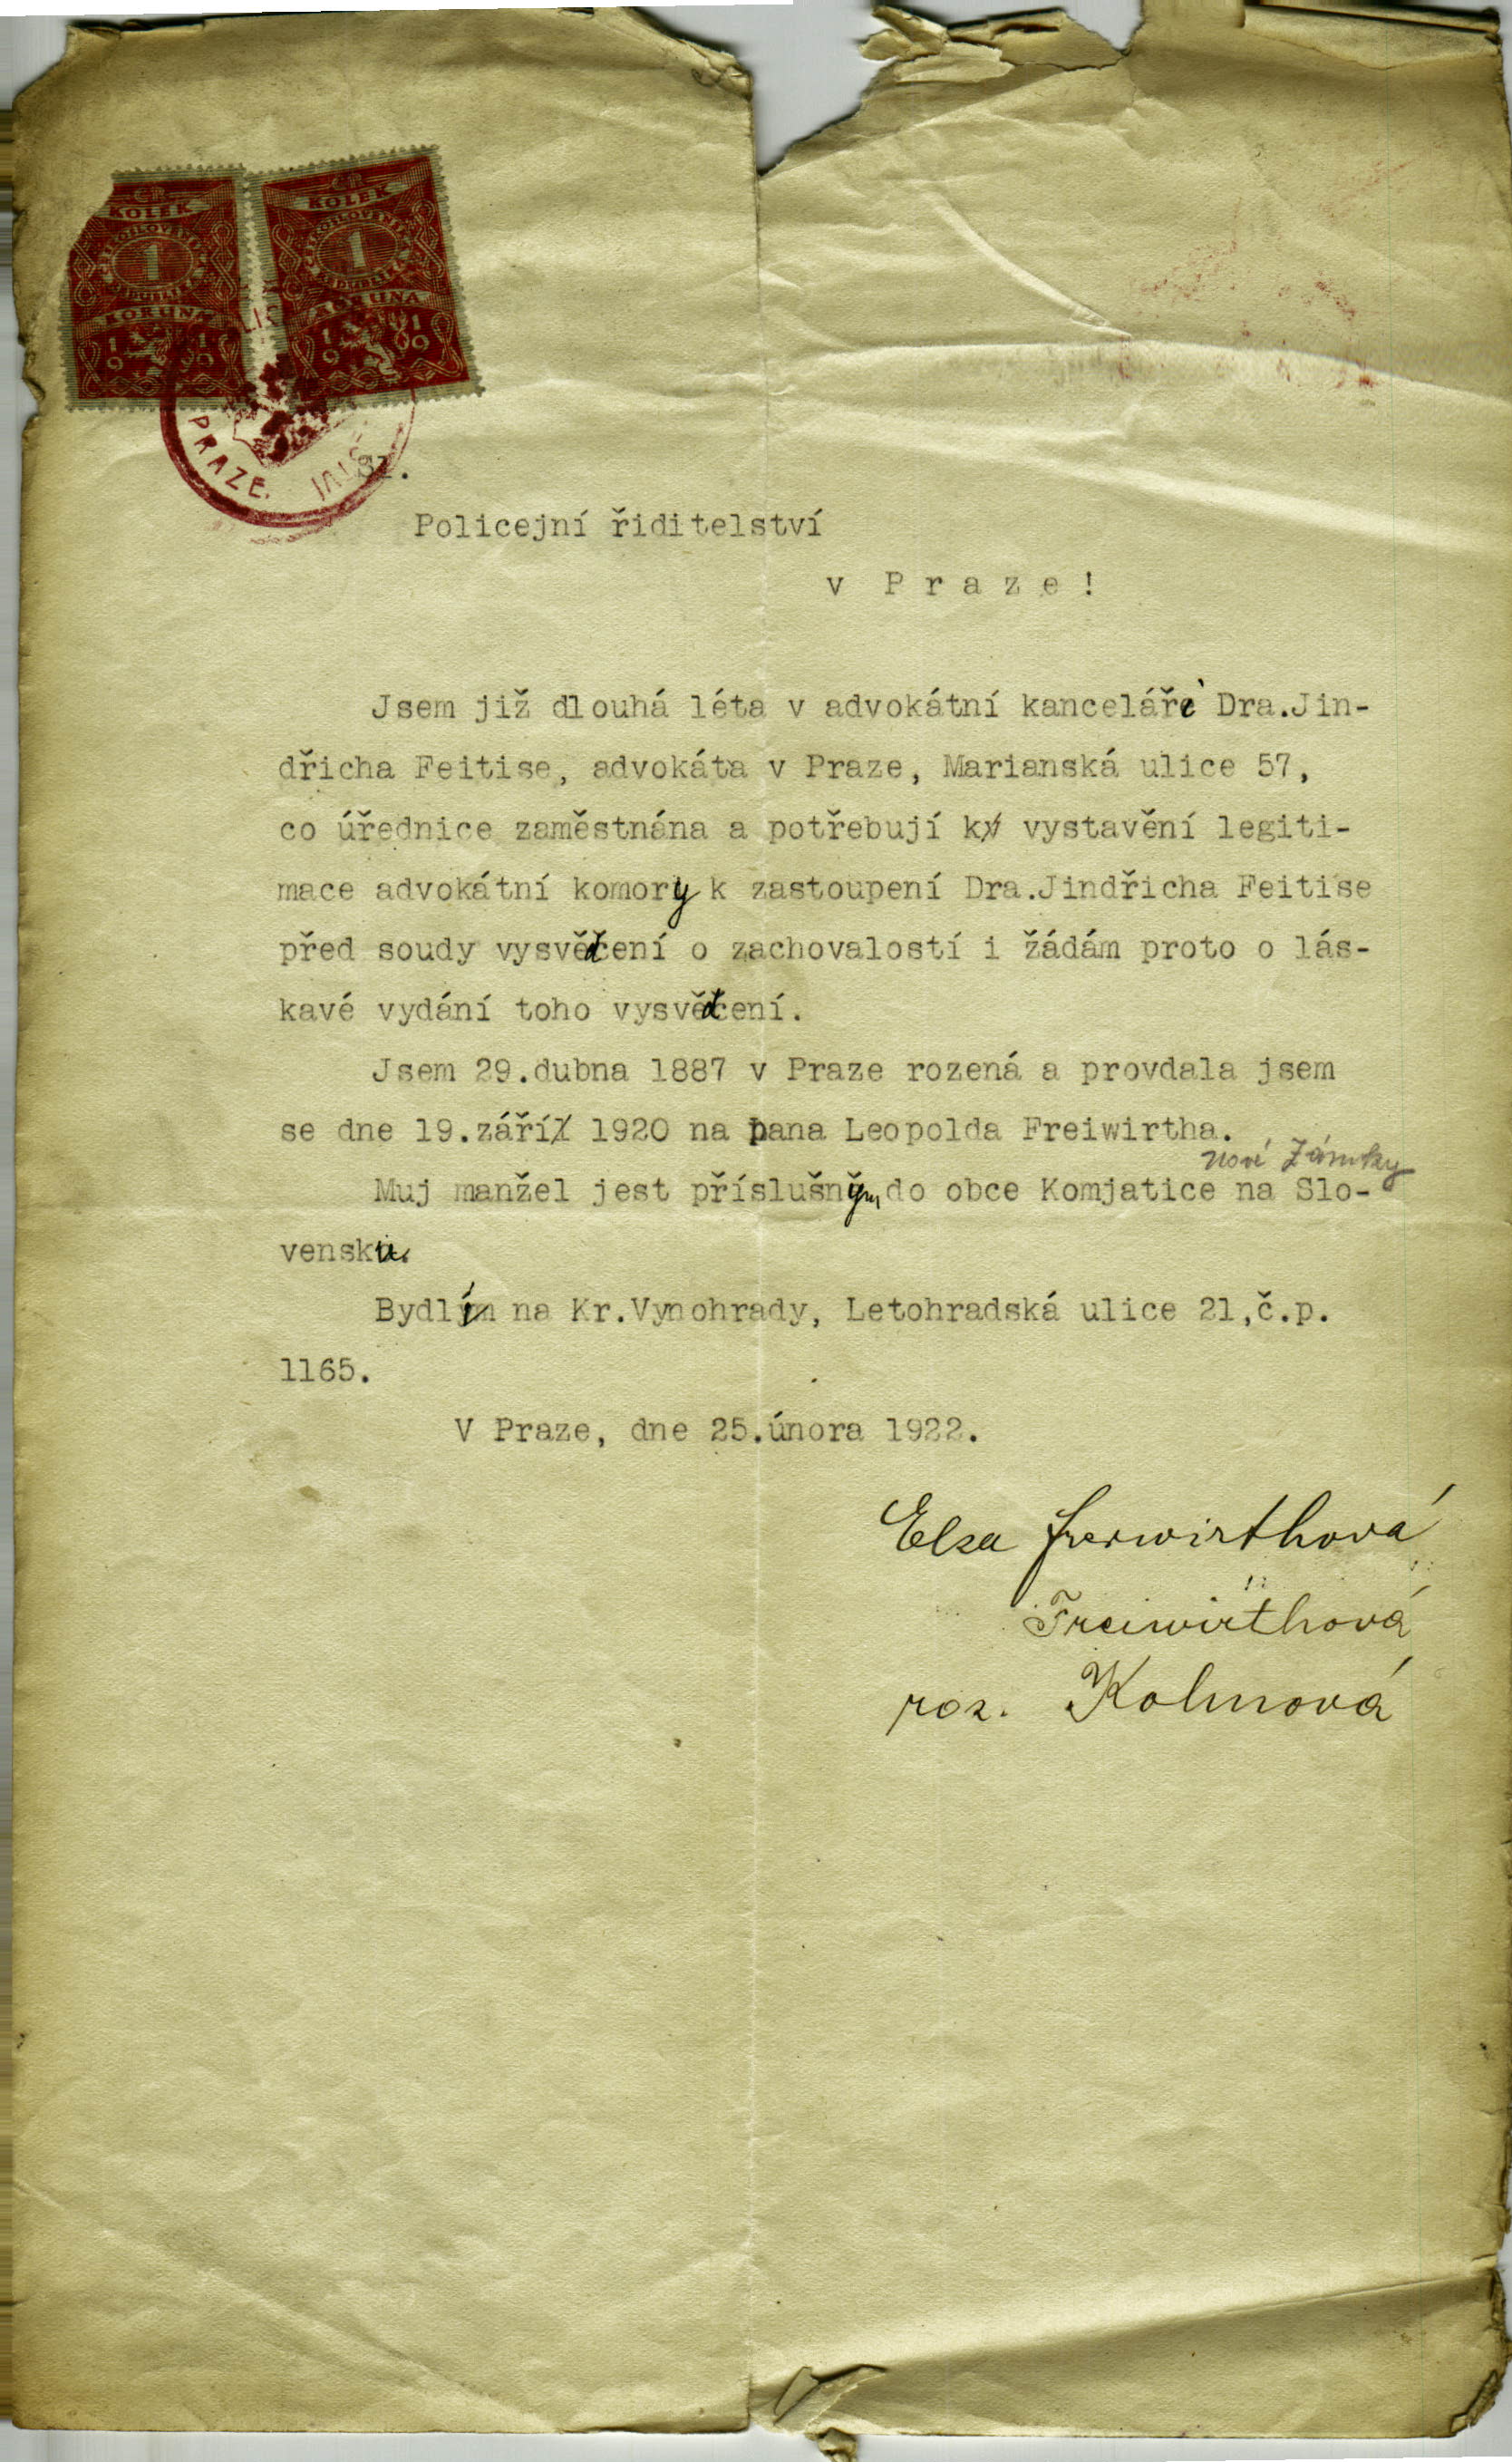 KOLEK
ČESKOSLOVENSKÁ
1
REPUBLIKA
KORUNA
1919
Č.R.
KOLEK
ČESKOSLOVENSKÁ
1
REPUBLIKA
KORUNA
1919
PRAZE.
Sl.
Policejní řiditelství
v Praze!
Jsem již dlouhá léta v advokátní kanceláři Dra.Jin-
dřicha Feitise, advokáta v Praze, Marianská ulice 57,
co úřednice zaměstnána a potřebují k vystavění legiti-
mace advokátní komory k zastoupení Dra.Jindřicha Feitise
před soudy vysvědčení o zachovalostí i žádám proto o lás-
kavé vydání toho vysvědčení.
Jsem 29.dubna 1887 v Praze rozená a provdala jsem
se dne 19.září 1920 na pana Leopolda Freiwirtha.
Nové Zámky
Muj manžel jest příslušným do obce Komjatice na Slo-
vensku.
Bydlím na Kr.Vynohrady, Letohradská ulice 21,č.p.
1165.
V Praze, dne 25.února 1922.
Elsa Freiwirthová
Freiwirthová
roz. Kohnová